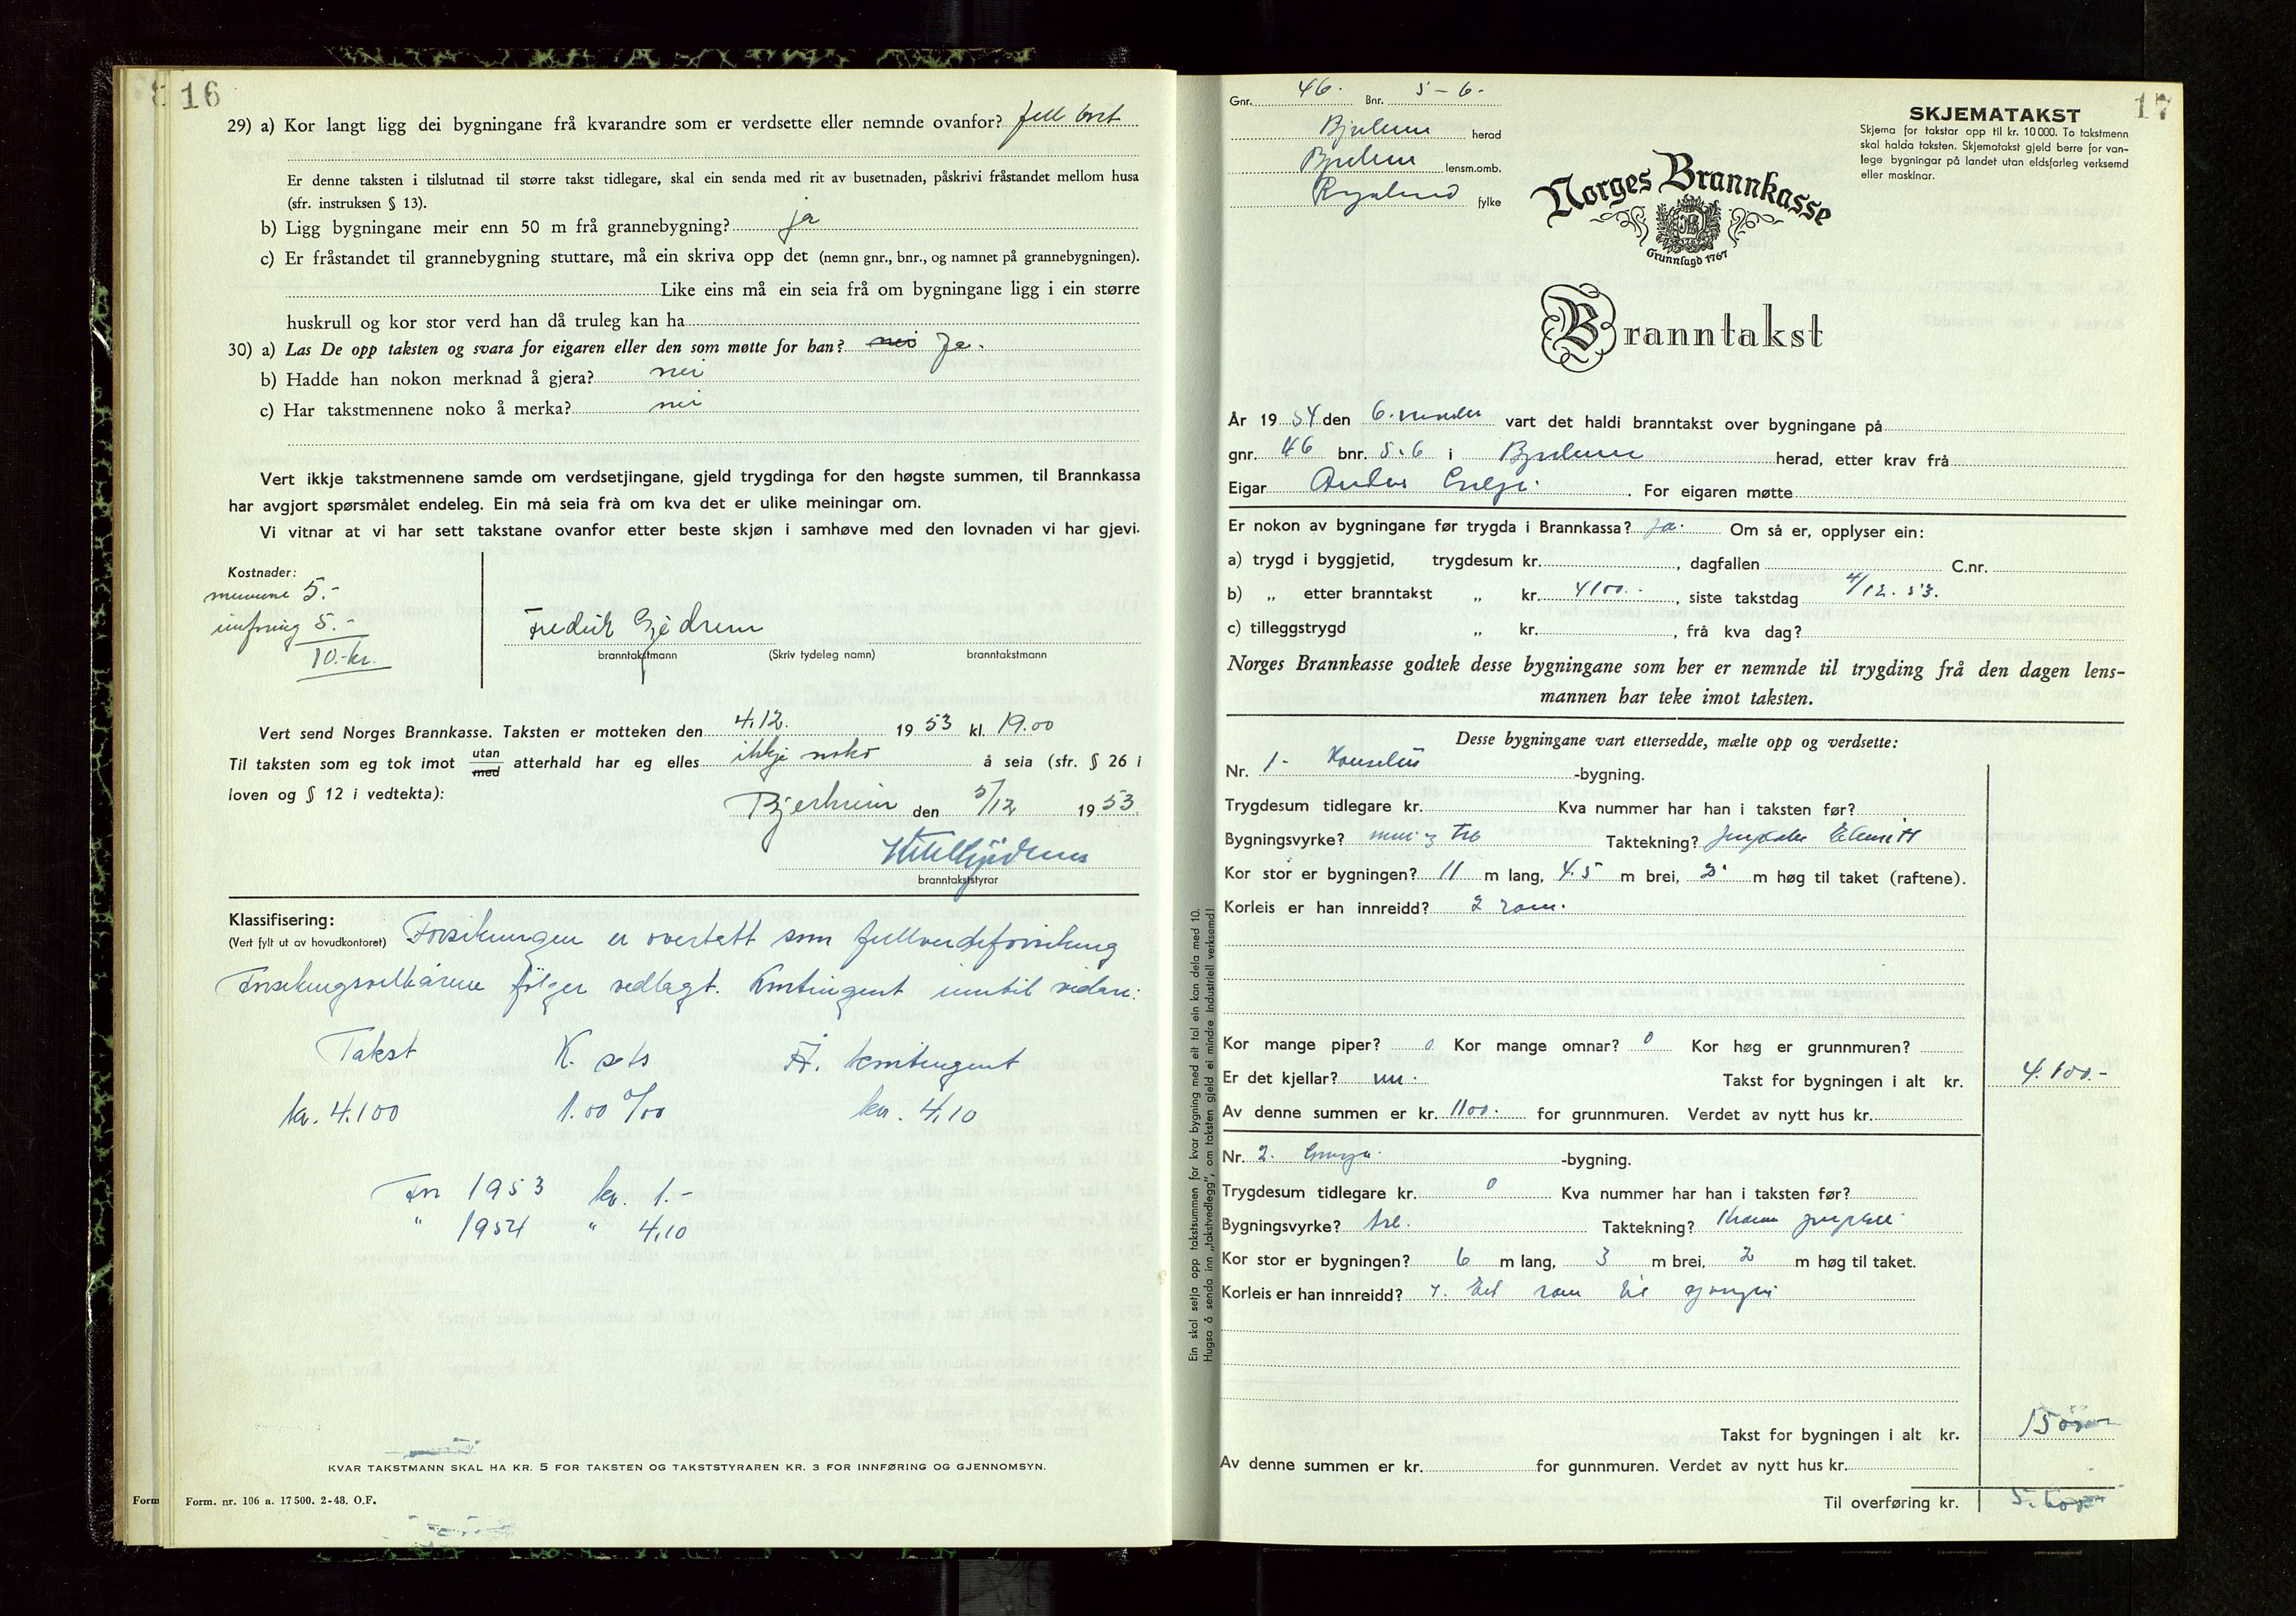 16
29) a) Kor langt ligg dei bygningane frå kvarandre som er verdsette eller nemnde ovanfor?
Er denne taksten i tilslutnad til større takst tidlegare, skal ein senda med rit av busetnaden, påskrivi fråstandet mellom husa
(sfr. instruksen § 13).
b) Ligg bygningane meir enn 50 m frå grannebygning? ja
c) Er fråstandet til grannebygning stuttare, må ein skriva opp det (nemn gnr., bnr., og namnet på grannebygningen).
Like eins må ein seia frå om bygningane ligg i ein større
huskrull og kor stor verd han då truleg kan ha
30) a) Las De opp taksten og svara for eigaren eller den som møtte for han? nei Ja.
b) Hadde han nokon merknad å gjera? nei
c) Har takstmennene noko å merka? nei
Vert ikkje takstmennene samde om verdsetjingane, gjeld trygdinga for den høgste summen, til Brannkassa
har avgjort spørsmålet endeleg. Ein må seia frà om kva det er ulike meiningar om.
Vi vitnar at vi har sett takstane ovanfor etter beste skjøn i samhøve med den lovnaden vi har gjevi.
Kostnader:
mennene 5.-
innføring 5.-
10.-kr.
Fredrik Gjedrem
branntakstmann (Skriv tydeleg namn) branntakstmann
Vert send Norges Brannkasse. Taksten er motteken den 4.12. 19 53 kl. 19.00
Til taksten som eg tok imot utan/med atterhald har eg elles ikkje noko å seia (sfr. § 26 i
loven og § 12 i vedtekta):
Bjerkreim den 5/12 19 53.
branntakststyrar
Klassifisering:
(Vert fylt ut av hovudkontoret) Forsikringen er overtatt som fullverdiforsikring
Forsikringsvilkårene følger vedlagt. Kontingent inntil videre:
Takst K. sats Å. kontingent
kr. 4.100 1.00 o/oo kr. 4,10
For 1953 kr. 1.-
" 1954 " 4,10
KVAR TAKSTMANN SKAL HA KR. 5 FOR TAKSTEN OG TAKSTSTYRAREN KR. 3 FOR INNFØRING OG GJENNOMSYN.
Form
Form. nr. 106 a. 17 500. 2-48. O.F.
17
Gnr. 46. Bnr. 5-6.
Bjerkreim herad
Bjerkreim lensm.omb.
Rogaland fylke
SKJEMATAKST
Skjema for takstar opp til kr. 10 000. To takstmenn
skal halda taksten. Skjematakst gjeld berre for van-
lege bygningar på landet utan eldsfarleg verksemd
eller maskinar.
Norges Brannkasse
Grunnlagd 1767
Branntakst
År 19 54 den 6. vart det haldi branntakst over bygningane på
gnr. 46 bnr. 5-6 i Bjerkreim herad, etter krav frå
Eigar . For eigaren møtte
Er nokon av bygningane før trygda i Brannkassa? ja. Om så er, opplyser ein:
a) trygd i byggjetid, trygdesum kr. , dagfallen C.nr.
b) „ etter branntakst „ kr. 4100.- , siste takstdag 4/12. 53.
c) tilleggstrygd „ kr. , frå kva dag?
Norges Brannkasse godtek desse bygningane som her er nemnde til trygding frå den dagen lens-
mannen har teke imot taksten.
Desse bygningane vart ettersedde, mælte opp og verdsette:
Nr. 1- -bygning.
Trygdesum tidlegare kr. Kva nummer har han i taksten før?
Bygningsvyrke? mur og tre Taktekning?
Kor stor er bygningen? 11 m lang, 4.5 m brei, 2. m høg til taket (raftene).
Korleis er han innreidd? 2 rom.
Kor mange piper? 0 Kor mange omnar? 0 Kor høg er grunnmuren?
Er det kjellar? nei. Takst for bygningen i alt kr. 4.100.-
Av denne summen er kr. 1100. for grunnmuren. Verdet av nytt hus kr.
Nr. 2. -bygning.
Trygdesum tidlegare kr. 0 Kva nummer har han i taksten før?
Bygningsvyrke? tre. Taktekning?
Kor stor er bygningen? 6 m lang, 3 m brei, 2 m høg til taket.
Korleis er han innreidd?
Takst for bygningen i alt kr. 1500
Av denne summen er kr. for gunnmuren. Verdet av nytt hus kr.
Til overføring kr. 5.600
Ein skal setja opp takstsummen for kvar bygning med eit tal ein kan dela med 10.
Hugsa å senda inn „takstvedlegg", om taksten gjeld ei mindre industriell verksemd!